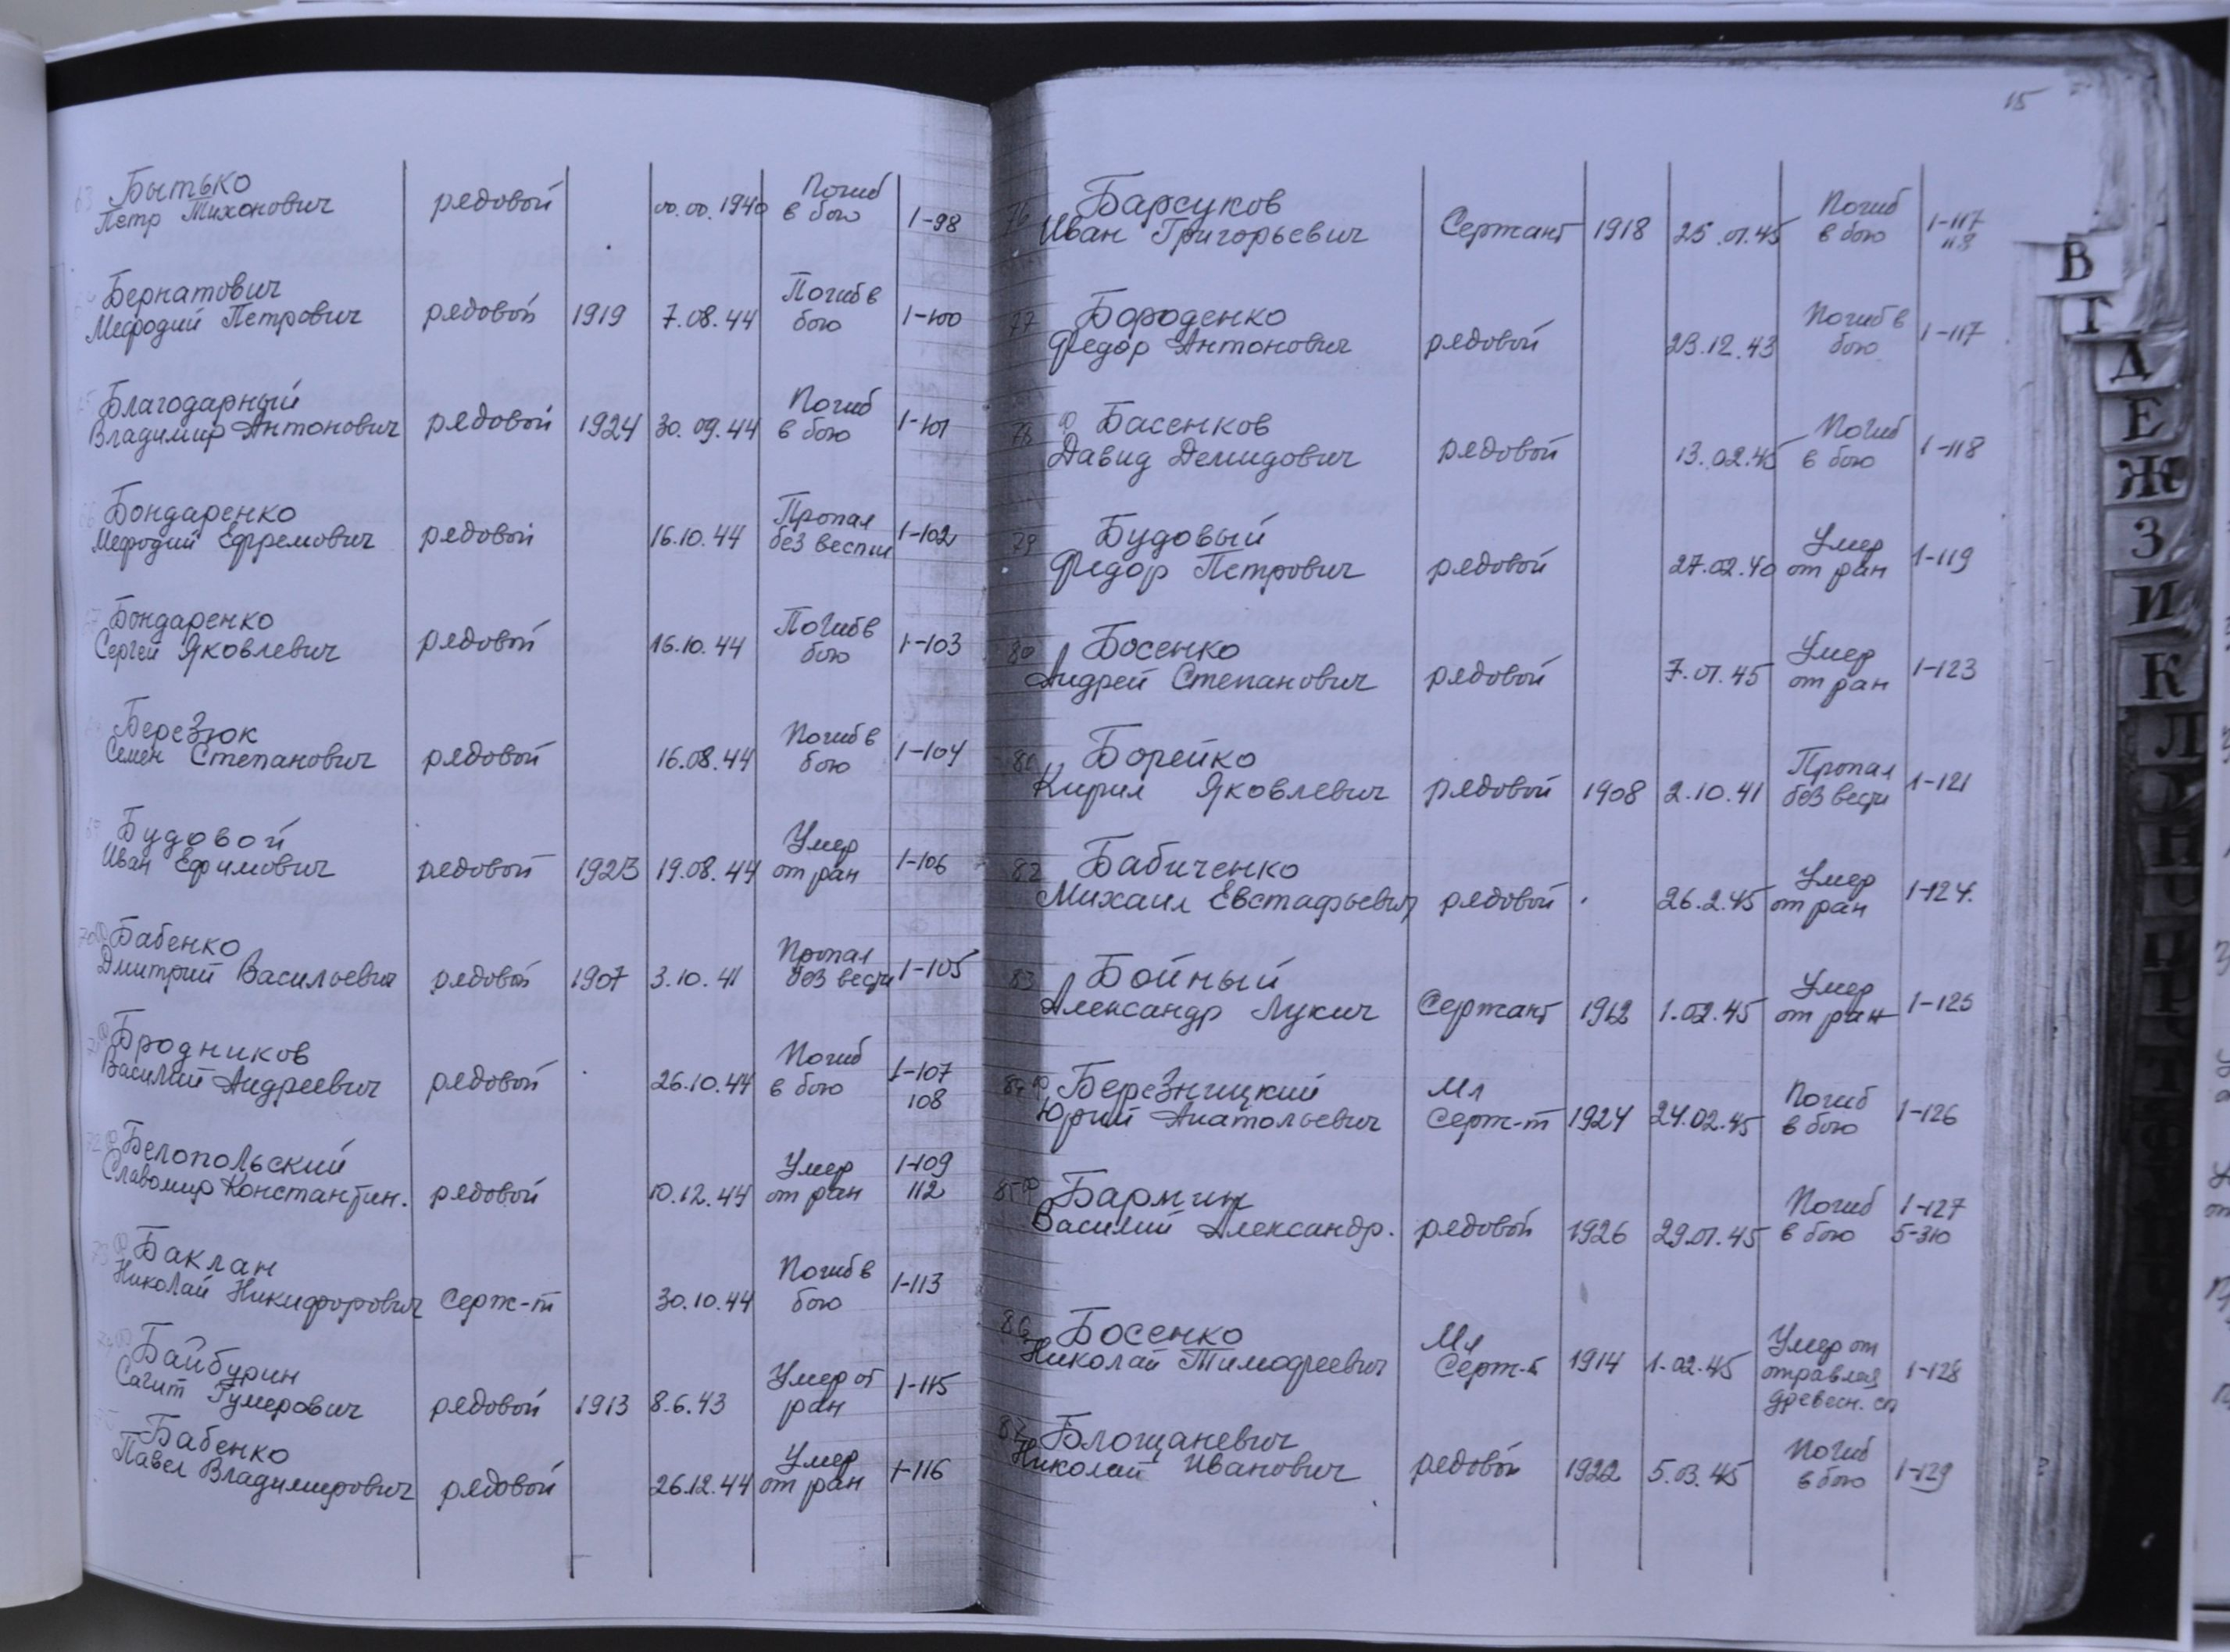 63 Бытько
Петр Тихонович рядовой 00.00.1940 Погиб в бою 1-98
Бернатович
Мефодий Петрович рядовой 1919 7.08.44 Погиб в бою 1-100
Благодарный
Владимир Антонович рядовой 1924 30.09.44 Погиб в бою 1-101
Бондаренко
Мефодий Ефремович рядовой 16.10.44 Пропал без вести 1-102
Бондаренко
Сергей Яковлевич рядовой 16.10.44 Погиб в бою 1-103
Березюк
Семен Степанович рядовой 16.08.44 Погиб в бою 1-104
Будовой
Иван Ефимович рядовой 1923 19.08.44 Умер от ран 1-106
70 Бабенко
Дмитрий Васильевич рядовой 1907 3.10.41 Пропал без вести 1-105
Бродников
Василий Андреевич рядовой 26.10.44 Погиб в бою 1-107
108
72 Белопольский
Славомир Константин. рядовой 10.12.44 Умер от ран 1-109
112
73 Баклан
Николай Никифорович Серж-т 30.10.44 Погиб в бою 1-113
Байбурин
Сагит Гумерович рядовой 1913 8.6.43 Умер от ран 1-115
Бабенко
Павел Владимирович рядовой 26.12.44 Умер от ран 1-116
15
76 Барсуков
Иван Григорьевич Сержант 1918 25.01.45 Погиб в бою 1-117
118
77 Бороденко
Федор Антонович рядовой 23.12.43 Погиб в бою 1-117
78 Басенков
Давид Демидович рядовой 13.02.45 Погиб в бою 1-118
79 Будовый
Федор Петрович рядовой 27.02.40 Умер от ран 1-119
80 Босенко
Андрей Степанович рядовой 7.01.45 Умер от ран 1-123
81 Борейко
Кирил Яковлевич рядовой 1908 2.10.41 Пропал без вести 1-121
82 Бабиченко
Михаил Евстафьевич рядовой 26.2.45 Умер от ран 1-124.
83 Бойный
Александр Лукич Сержант 1.02.45 Умер от ран 1-125
84 Березницкий
Юрий Анатольевич Мл Серж-т 1924 24.02.45 Погиб в бою 1-126
85 Бармин
Василий Александр. рядовой 1926 29.01.45 Погиб в бою 1-127
5-310
86 Босенко
Николай Тимофеевич Мл Серж-т 1914 1.02.45 Умер от отравлен древесн. сп 1-128
87 Блощаневич
Николай Иванович рядовой 1922 5.03.45 Погиб в бою 1-129
В
Г
Д
Е
Ж
З
И
К
Л